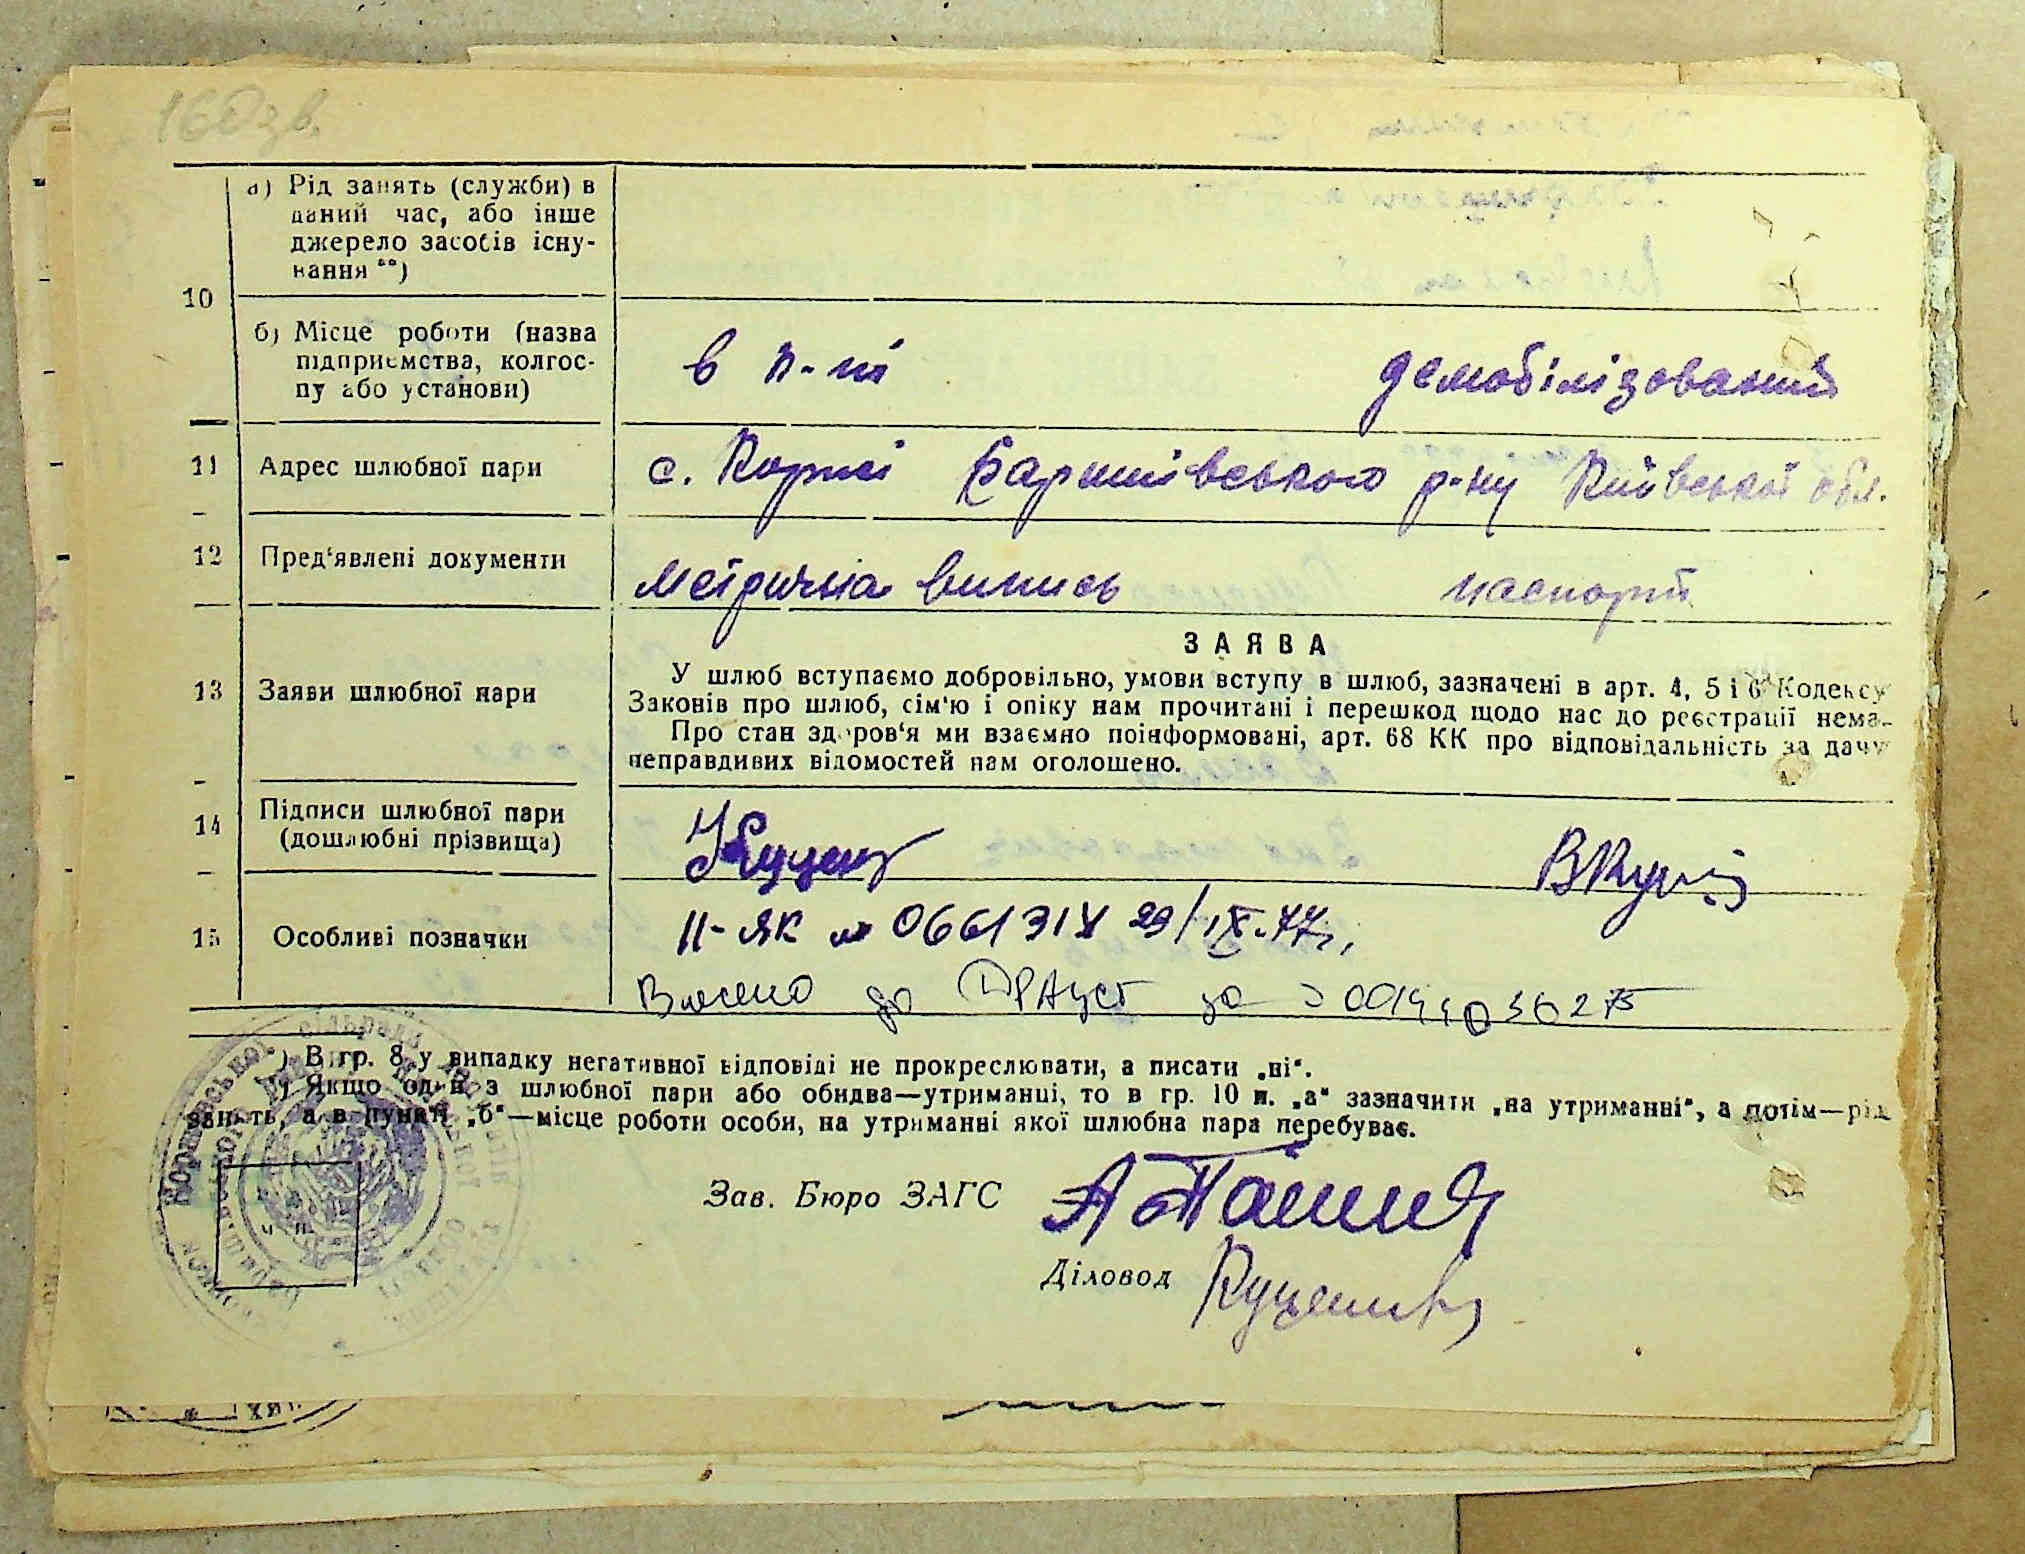 160зв.
а) Рід занять (служби) в
даний час, або інше
джерело засобів існу-
вання **)
10
б) Місце роботи (назва
підприємства, колгос-
пу або установи)
в к-пі демобілізований
11 Адрес шлюбної пари
с. Коржі Баришівського р-ну Київської обл.
12 Пред'явлені документи
метрична випись паспорт
ЗАЯВА
13 Заяви шлюбної пари
У шлюб вступаємо добровільно, умови вступу в шлюб, зазначені в арт. 4, 5 і 6 Кодексу
Законів про шлюб, сім'ю і опіку нам прочитані і перешкод щодо нас до реєстрації нема.
Про стан здоров'я ми взаємно поінформовані, арт. 68 КК про відповідальність за дачу
неправдивих відомостей нам оголошено.
14 Підписи шлюбної пари
(дошлюбні прізвища)
15 Особливі позначки
ІІ-ЯК № 29/ІХ-77р.
Внесено до ДРАЦСГ за 00144036275
*) В гр. 8 у випадку негативної відповіді не прокреслювати, а писати „ні“.
**) Якщо один з шлюбної пари або обидва—утриманці, то в гр. 10 п. „а“ зазначити „на утриманні“, а потім—рід
занять, а в пункті „б“—місце роботи особи, на утриманні якої шлюбна пара перебуває.
Зав. Бюро ЗАГС
Діловод
ч. п.